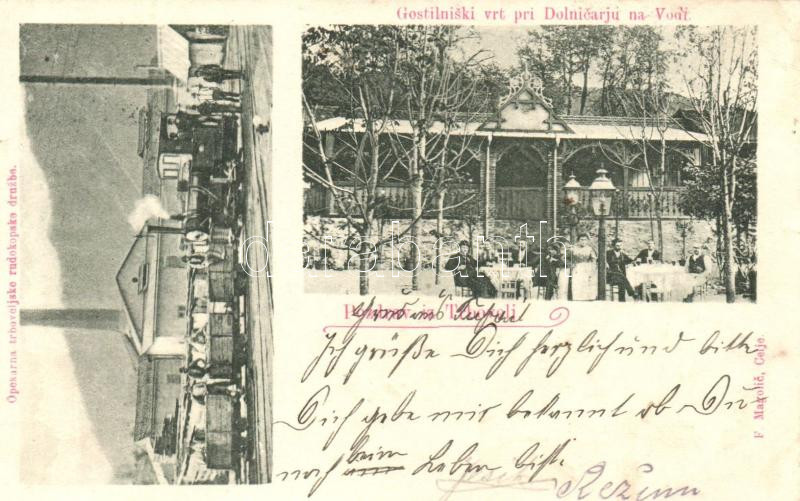 Gostilniški vrt pri Dolničarju na Vodi.
Opekarna trboveljske rudokopske družbe.
Pozdrav iz Trbovelj
Gruß aus
Ich grüße Dich herzlich und bitte
Dich gebe mir bekannt ob Du
noch beim Leben bist.
F. Magolič, Celje.
darabanth